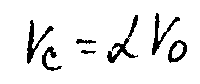 V_c = αV_0